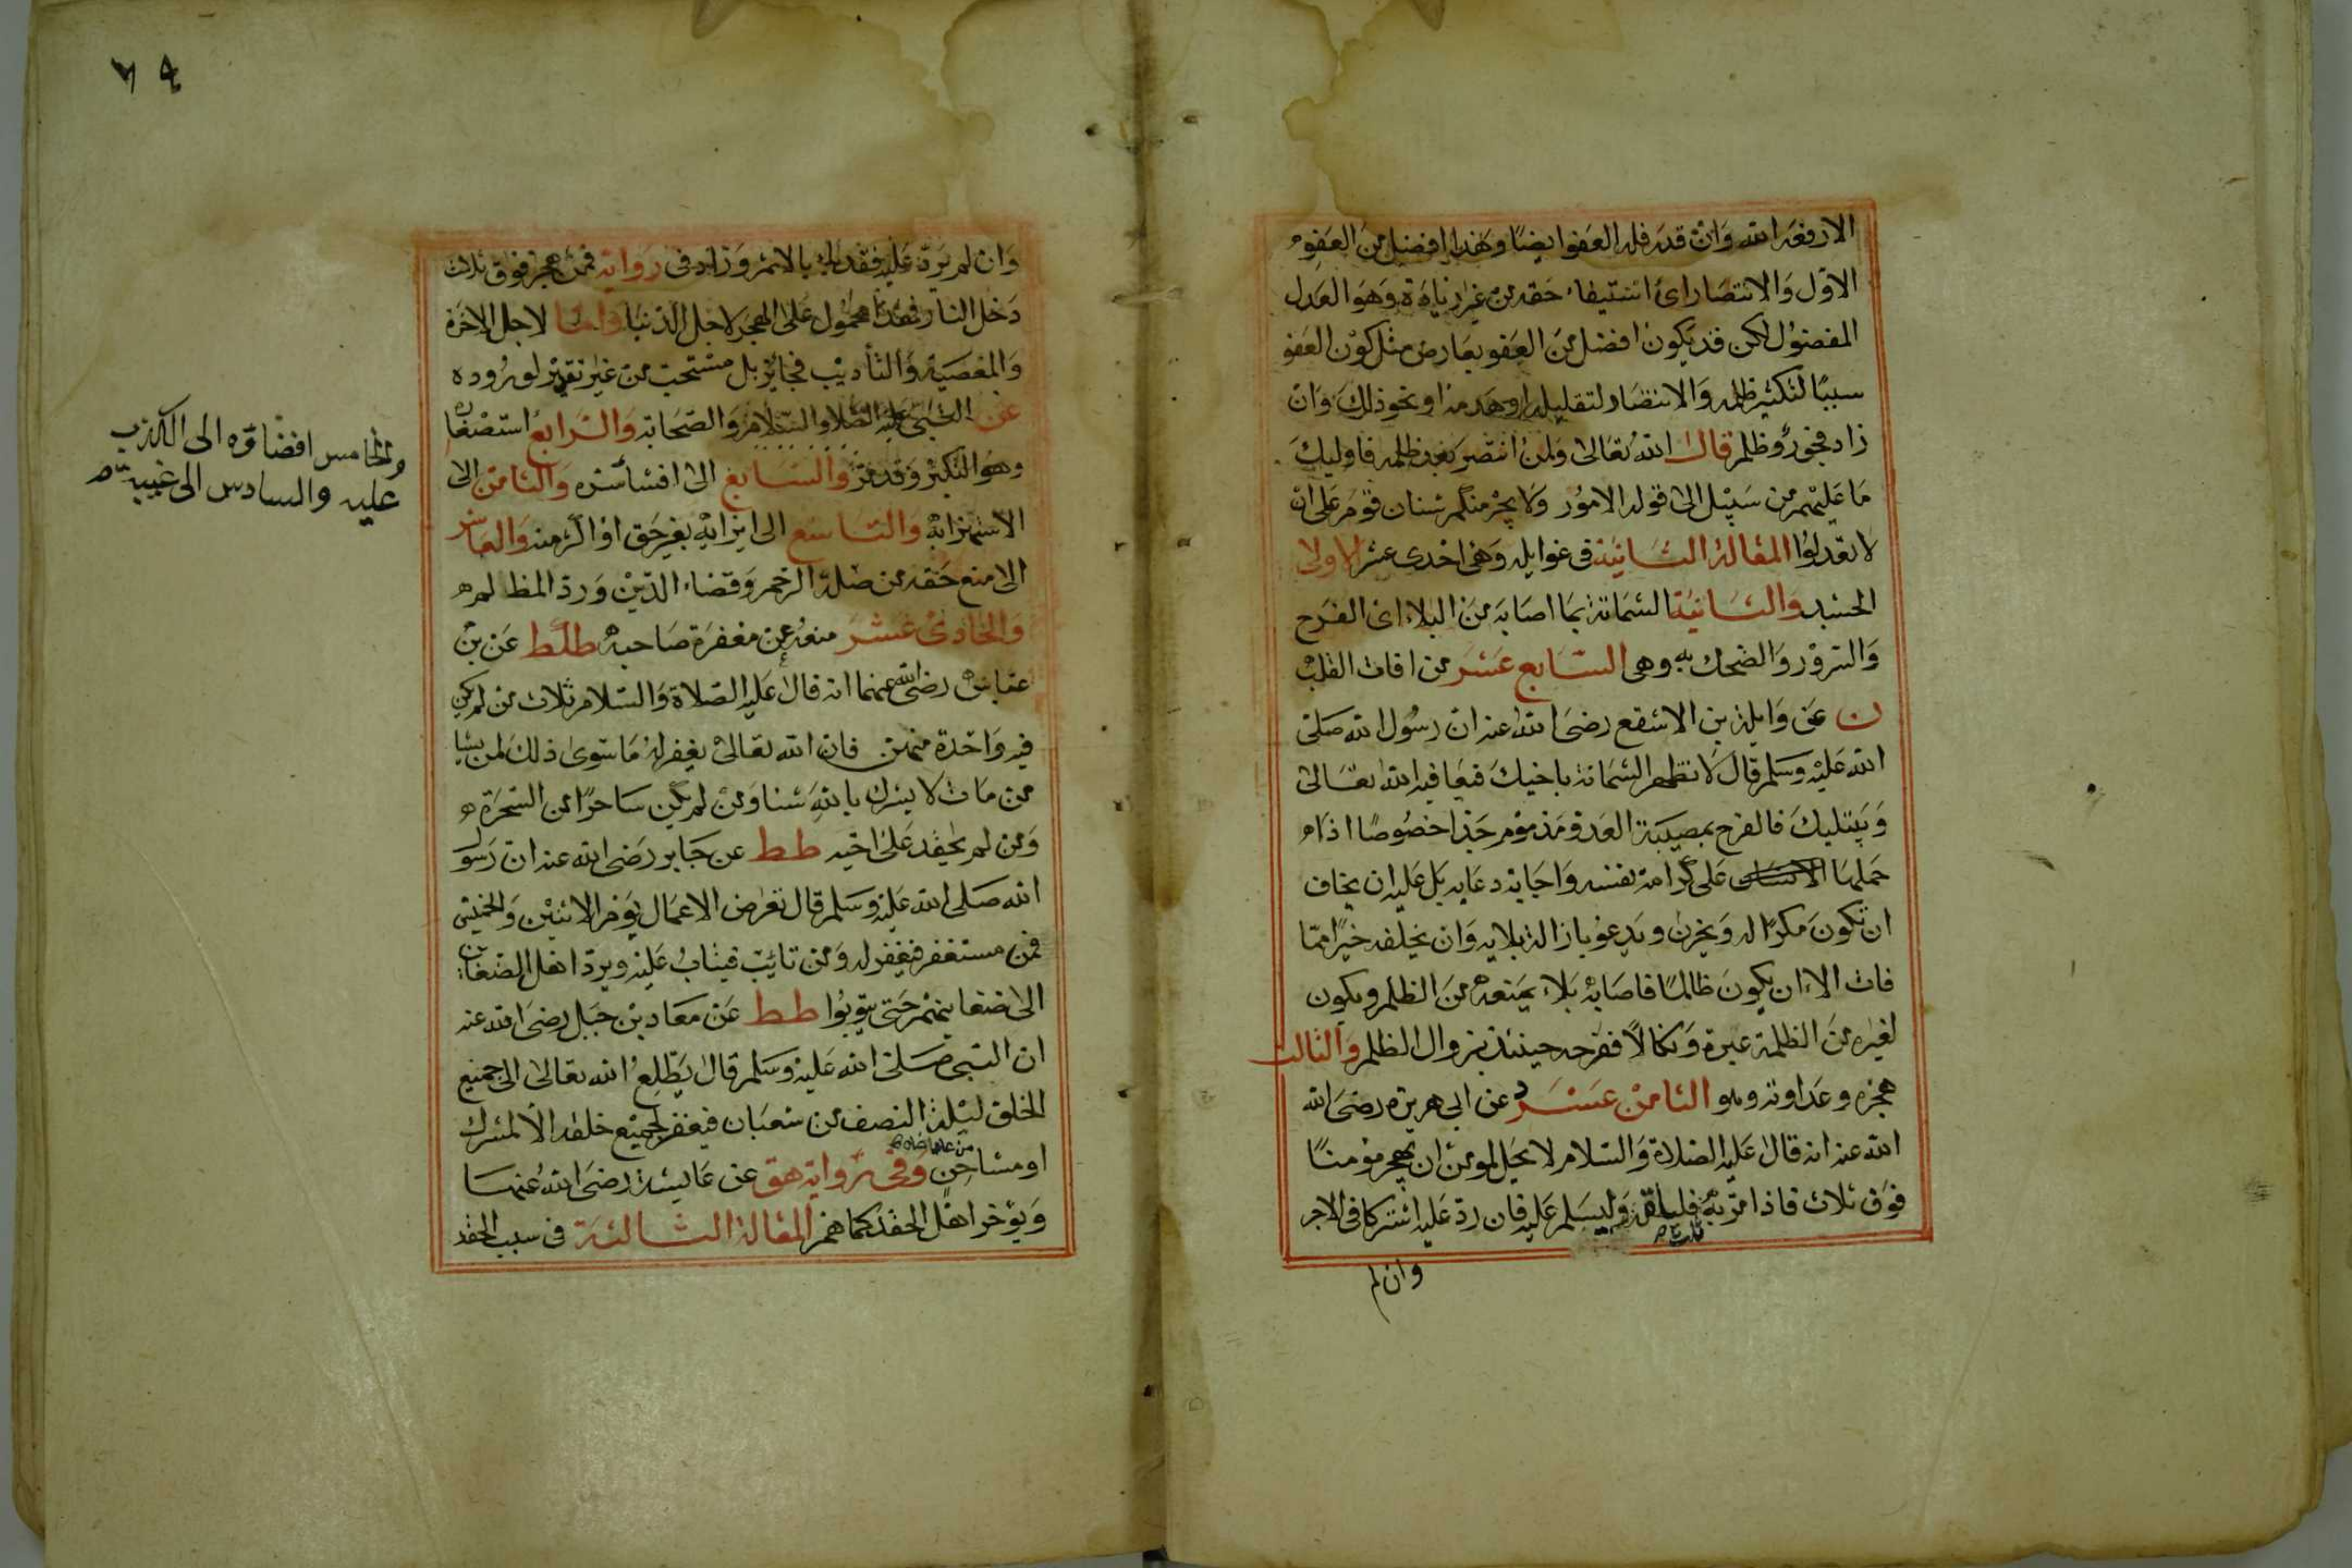 الارفعه الله وان قدر فله العفو ايضا وهذا افضل من العفو
الاول والانتصار اى استيفاء حقه من غير زيادة وهو العدل
المفضول لكن قد يكون افضل من العفو بعارض مثل كون العفو
سببا لتكثير ظلمه والانتصار لتقليله او هدمه او نحو ذلك وان
زاد فجور وظلم قال الله تعالى ولمن انتصر بعد ظلمه فاوليك
ما عليهم من سبيل الى قوله الامور ولا يجرمنكم شنان قوم على ان
لا تعدلوا المقالة الثانية فى غوايله وهى احدى عشر الاولى
الحسد والثانية الشماتة بما اصابه من البلاء اى الفرح
والسرور والضحك به وهى السابع عشر من افات القلب
ن عن وايلة بن الاسقع رضى الله عنه ان رسول الله صلى
الله عليه وسلم قال لا تظهر الشماتة باخيك فيعافيه الله تعالى
ويبتليك فالفرح بمصيبة العدو مذموم جدا خصوصا اذا
حملها على كرامة نفسه واجابة دعايه بل عليه ان يخاف
ان تكون مكرا له ويحزن ويدعو بازالة بلايه وان يخلفه خيرا مما
فات الا ان يكون ظالما فاصابه بلاء يمنعه من الظلم ويكون
لغيره من الظلمة عبرة ونكالا ففرحه حينئذ بزوال الظلم والثالث
هجره وعداوته وهو الثامن عشر د عن ابى هريرة رضى الله
الله عنه انه قال عليه الصلاة والسلام لا يحل لمومن ان يهجر مؤمنا
فوق ثلاث فاذا مر به فليلقه وليسلم عليه فان رد عليه اشتركا فى الاجر
وان لم
٧٤
وان لم يرد عليه فقد باء بالاثم وزاد فى رواية فمن هجر فوق ثلاث
دخل النار فهذا محمول على الهجر لاجل الدنيا واما لاجل الاخرة
والمعصية والتأديب فجايز بل مستحب من غير تقدير لوروده
عن النبى عليه الصلاة والسلام والصحابة والرابع استصغاره
وهو التكبر وقد مر والسابع الى افشاء سره والثامن الى
الاستهزا به والتاسع الى ايذايه بغير حق او اكثر منه والعاشر
الى منع حقه من صلة الرحم وقضاء الدين ورد المظلمه
والحادى عشر منعه عن مغفرة صاحبه طلط عن بن
عباس رضى الله عنهما انه قال عليه الصلاة والسلام ثلاث من لم يكن
فيه واحدة منهن فان الله تعالى يغفر له ما سوى ذلك لمن يشا
من مات لا يشرك بالله شيا ومن لم يكن ساحرا من السحرة
ومن لم يحقد على اخيه طط عن جابر رضى الله عنه ان رسول
الله صلى الله عليه وسلم قال تعرض الاعمال يوم الاثنين والخميس
فمن مستغفر فيغفر له ومن تائب فيتاب عليه ويرد اهل الضغاين
الى ضغاينهم حتى يتوبوا طط عن معاد بن جبل رضى الله عنه
ان النبى صلى الله عليه وسلم قال يطلع الله تعالى الى جميع
الخلق ليلة النصف من شعبان فيغفر لجميع خلقه الا لمشرك
او مشاحن وفى رواية هق عن عايشة رضى الله عنها
ويؤخر اهل الحقد كما هم المقالة الثالثة فى سبب الحقد
والخامس افضاؤه الى الكذب
عليه والسادس الى غيبته